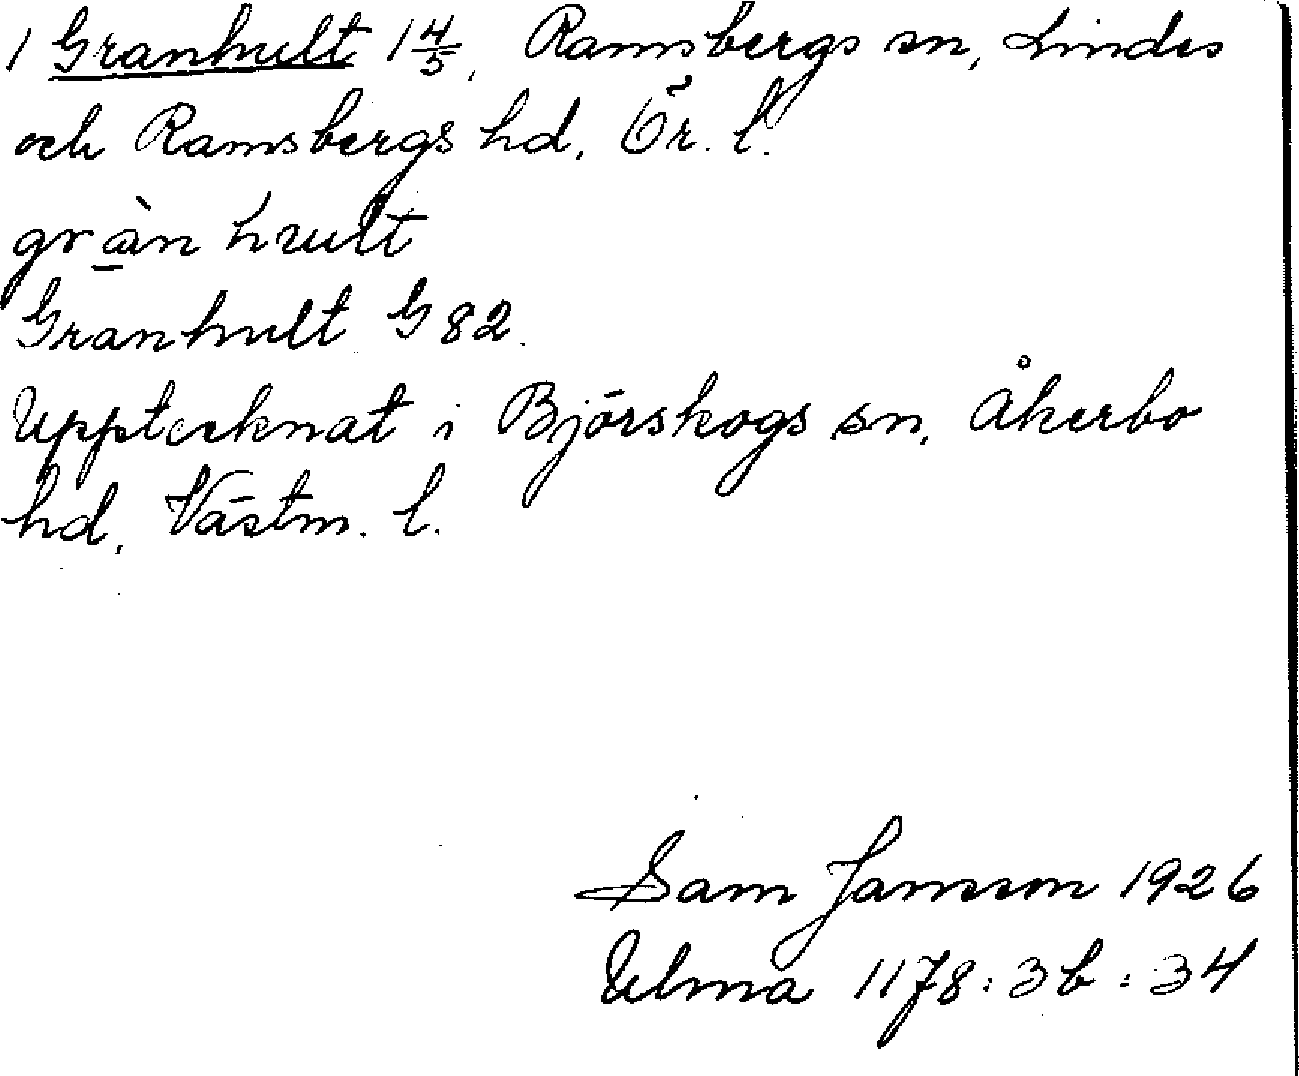 1 Granhult 1 4/5, Ramsbergs sn, Lindes
och Ramsbergs hd, Ör. l.
gràn hult
Granhult G 82.
Upptecknat i Björskogs sn, Åkerbo
hd, Västm. l.
Sam Jansson 1926
Ulma 1178:3b:34